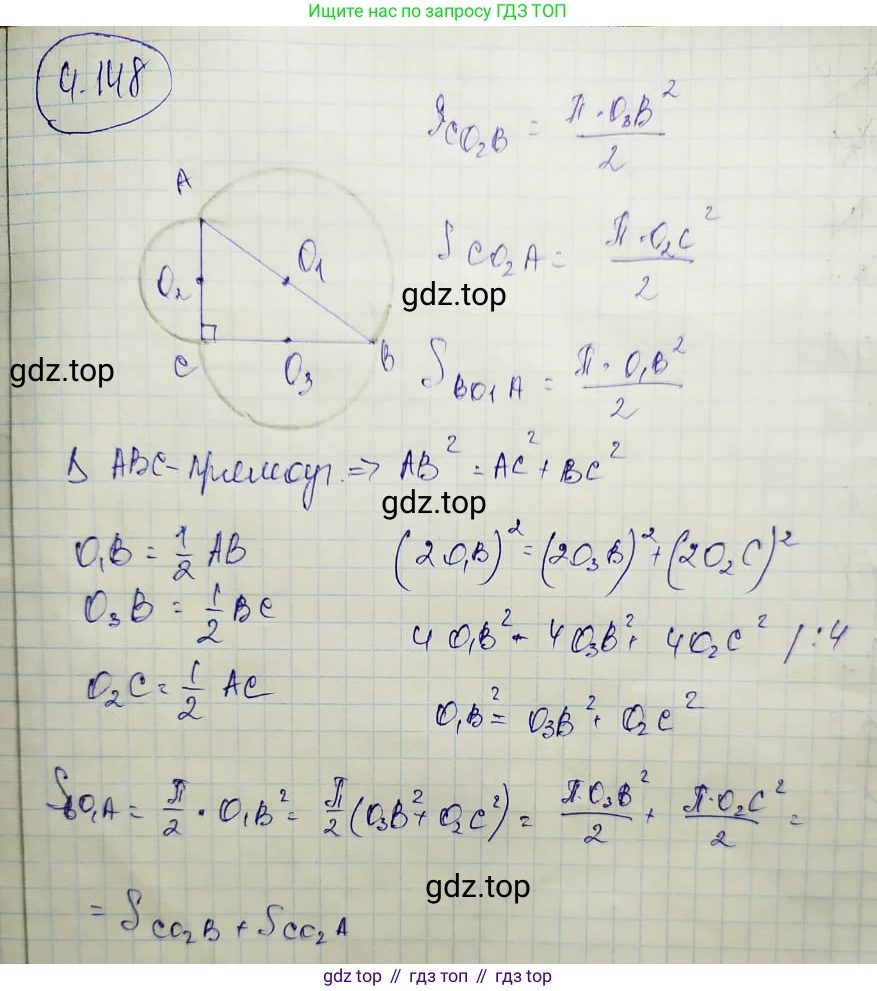 Ищите нас по запросу ГДЗ ТОП
4.148
S_CO₂B = π · O₃B² / 2
A
S_CO₂A = π · O₂C² / 2
O₁
O₂
gdz.top
C
O₃
B
gdz.top
S_BO₁A = π · O₁B² / 2
Δ ABC - прямоуг. => AB² = AC² + BC²
gdz.top
O₁B = 1/2 AB
(2O₁B)² = (2O₃B)² + (2O₂C)²
O₃B = 1/2 BC
4O₁B² = 4O₃B² + 4O₂C² / :4
O₂C = 1/2 AC
O₁B² = O₃B² + O₂C²
S_BO₁A = π/2 · O₁B² = π/2 (O₃B² + O₂C²) = π·O₃B²/2 + π·O₂C²/2 =
gdz.top
= S_CO₂B + S_CO₂A
gdz top // гдз топ // gdz top